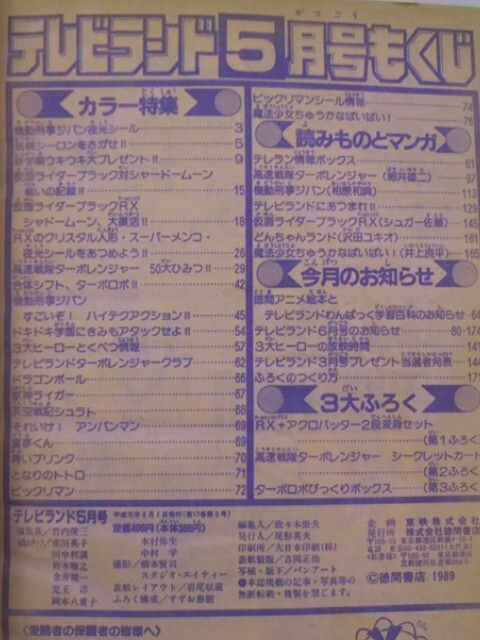 テレビランド5月号もくじ
カラー特集
機動刑事ジバン夜光シール 3
妖精シーロンをさがせ!! 5
新学期ウキウキ大プレゼント!! 9
仮面ライダーブラック対シャドームーン
戦いの記録!! 15
仮面ライダーブラックRX
シャドームーン、大復活!! 18
RXのクリスタル人形・スーパーメンコ・
夜光シールをあつめよう!! 26
高速戦隊ターボレンジャー 50大ひみつ!! 29
合体シフト、ターボロボ!! 42
機動刑事ジバン
すごいぞ! ハイテクアクション!! 45
ドキドキ学園にきみもアタックせよ!! 54
3大ヒーローとくべつ情報 57
テレビランドターボレンジャークラブ 62
ドラゴンボール 66
獣神ライガー 67
天空戦記シュラト 68
それいけ! アンパンマン 69
夢くん 69
青いブリンク 70
となりのトトロ 71
ビックリマン 72
ビックリマンシール情報 74
魔法少女ちゅうかなぱいぱい! 76
読みものとマンガ
テレラン情報ボックス 81
高速戦隊ターボレンジャー(細井雄二) 97
機動刑事ジバン(相原和調) 113
テレビランドにあつまれ!! 129
仮面ライダーブラックRX(シュガー佐藤) 145
どんちゃんランド(沢田ユキオ) 161
魔法少女ちゅうかなぱいぱい!(井上良平) 165
今月のお知らせ
徳間アニメ絵本と
テレビランドわんぱっく学習百科のお知らせ 64
テレビランド6月号のお知らせ 80・174
3大ヒーローの放映時間 141
テレビランド3月号プレゼント当選者発表 144
ふろくのつくり方 171
3大ふろく
RX+アクロバッター2段変身セット
(第1ふろく)
高速戦隊ターボレンジャー シークレットカード
(第2ふろく)
ターボロボびっくりボックス (第3ふろく)
テレビランド5月号
平成元年5月1日発行(第17巻第5号)
定価400円(本体388円)
編集長/竹内俊三
市川英子
川中利満
鈴木雅之
金井健一
児玉淳
岡本八重子
木村弥生
中村学
撮影/橋本賢司
スタジオ・エイティー
表紙レイアウト/岩尾収蔵
ふろく構成/すずお泰樹
編集人/佐々木崇夫
発行人/尾形英夫
印刷所/大日本印刷(株)
表紙製版/吉岡正治
写植・版下/パンアート
●本誌掲載の記事・写真等の
無断転載・複製を禁じます。
企画 東映株式会社
発行所 株式会社徳間書店
©徳間書店 1989
〈愛読者の保護者の皆様へ〉